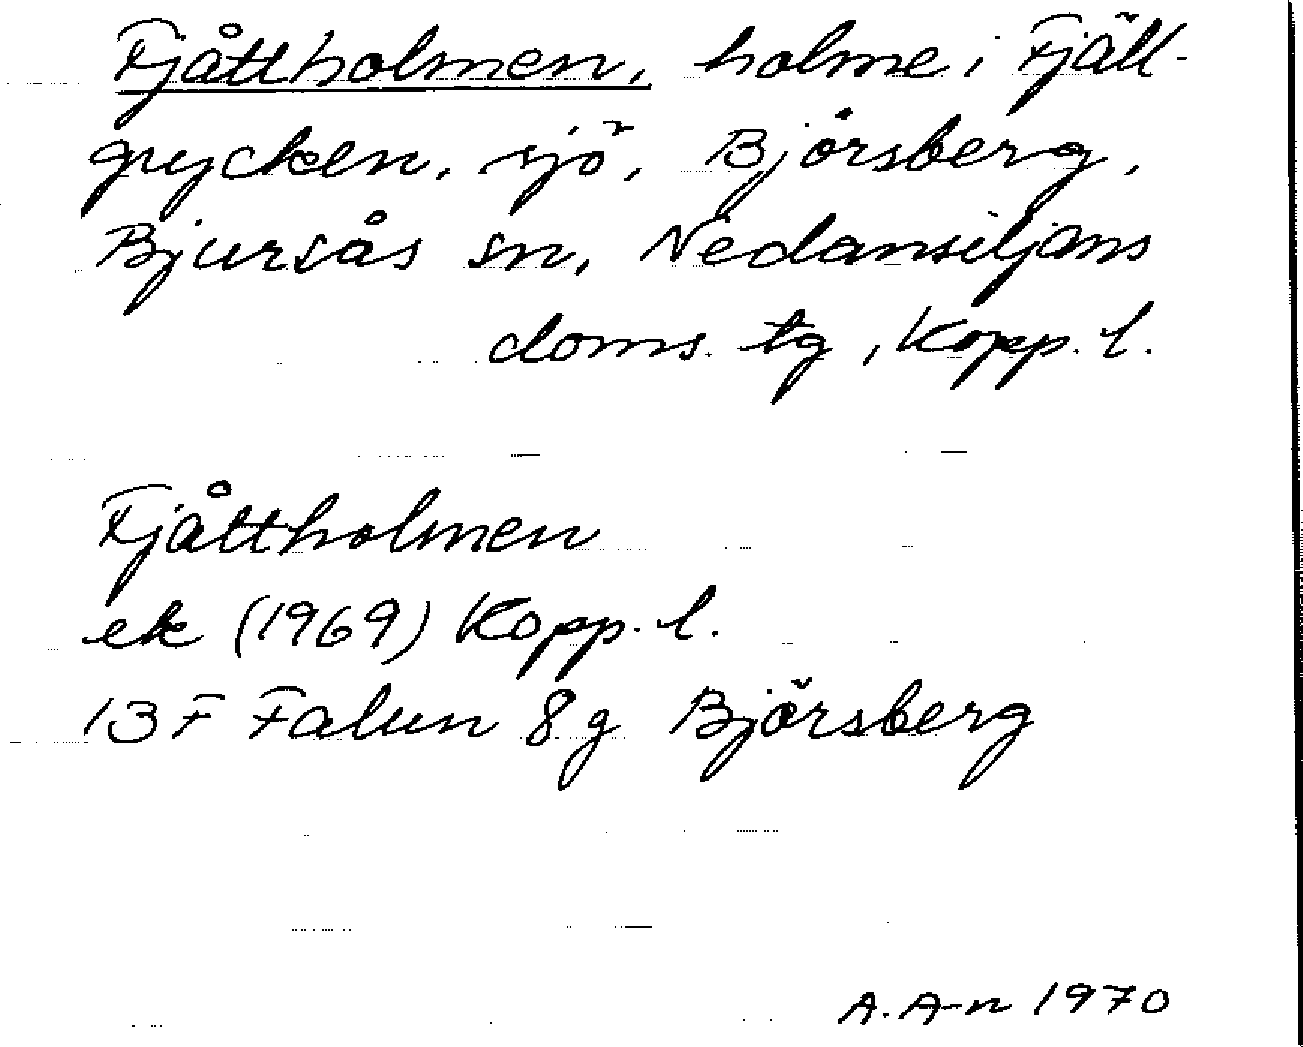 Fjåttholmen, holme i Fjäll-
grycken, sjö, Björsberg,
Bjursås sn, Nedansiljans
doms. tg, Kopp. l.
Fjåttholmen
ek (1969) Kopp. l.
13 F Falun 8 g Björsberg
A. A-n 1970